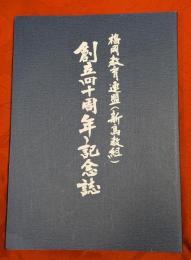 梅岡教育連盟(新高教組)
創立四十周年記念誌